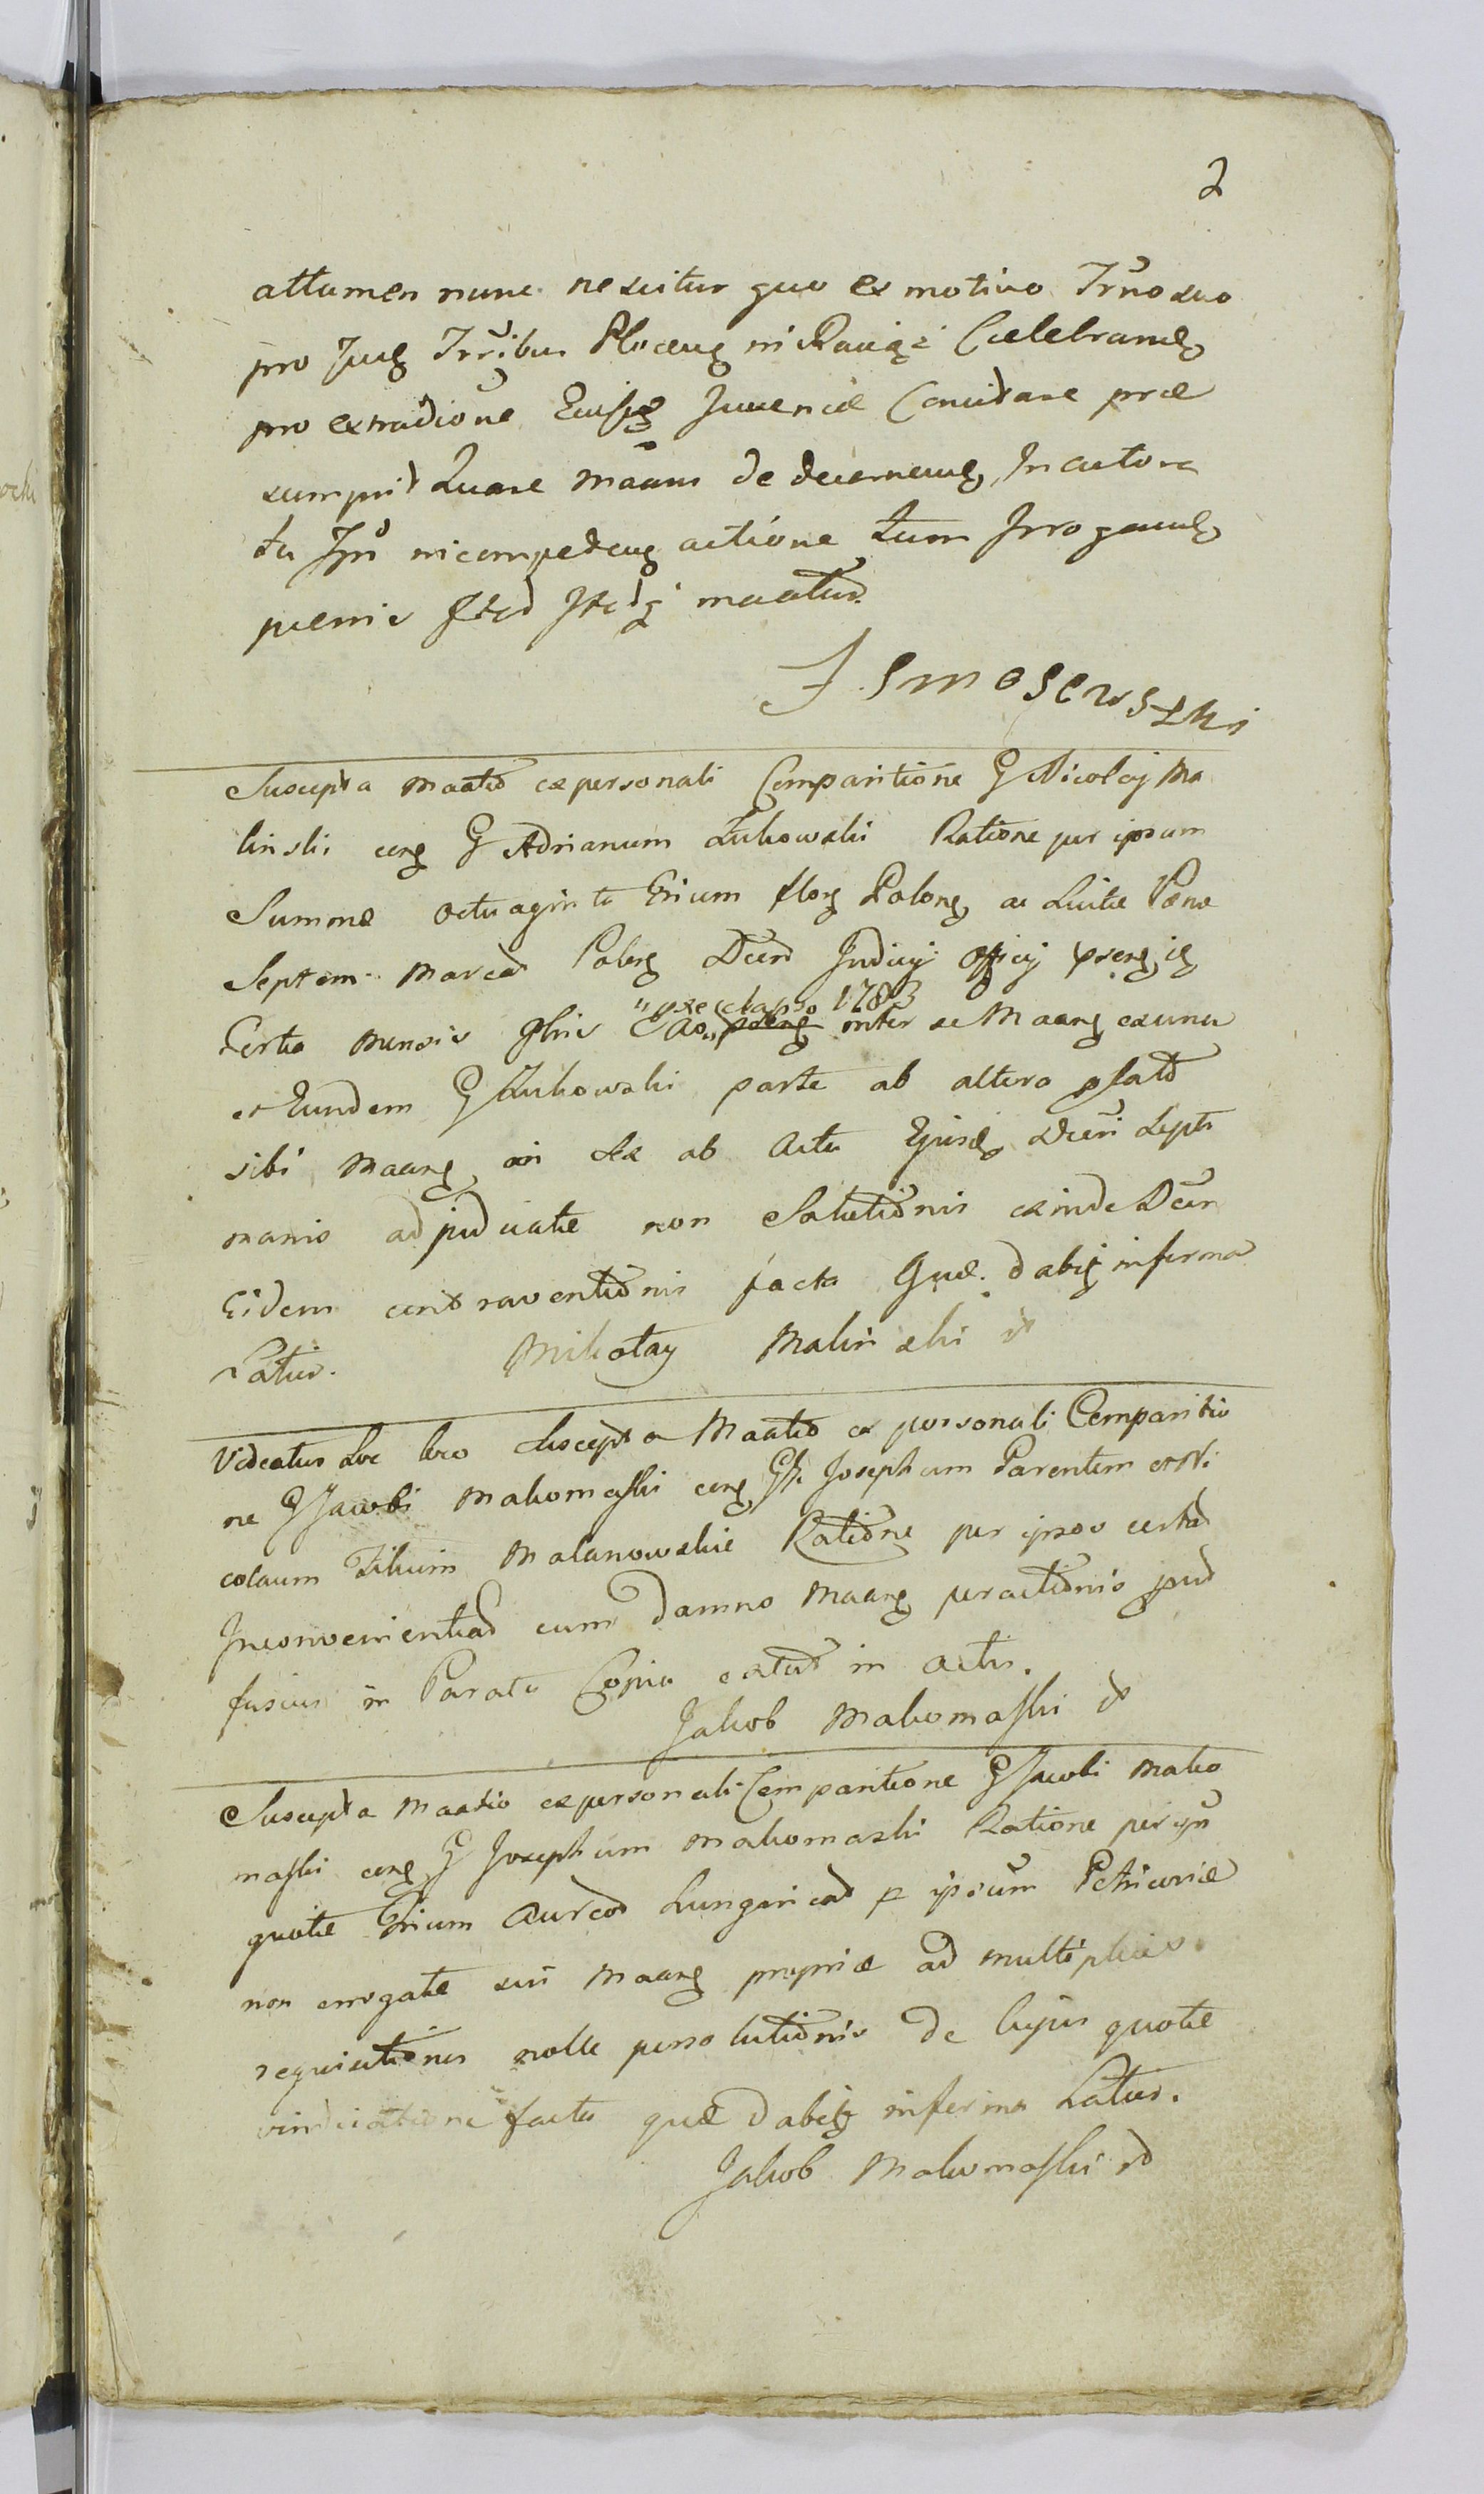 2
attamen nunc nescitur quo ex motivo Trno suo
pro Jud Trribus Plocen in Raciąż Caelebrand
pro extraditione Ejusd Juvencae Concitare prae
sumpsit Quare Maans de decernend In actora
tu Jpo incompeten actione tum Irrogand
paenis sted Isted maatur.
J. Smosewski
Suscepta Maatio ex personali Comparitione G Nicolaj Ma
linski cerg G Adrianum Żukowski Ratione per ipsum
Summae octuaginta trium flor Polon ac Luitae Paenae
Septem Marcar Polon Decr Judicij Officij
Tertia mensis 9bris "prae elapso 1783 inter se Maan ex una
et Eundem G Żukowski parte ab altera plato
sibi Maan in Sex ab Actu Ejusd Decri Septi
manis adjudicatae non Solutionis exinde Decr
Eidem contraventionis facta Quae dabit in forma
Latius.
Mikołay Malinski
Videatur Suo loco Suscepta Maatio ex personali Comparitio
ne G Jacobi Makomaski cerg GG Josephum Parentem et Ni
colaum Filium Malanowskie Ratione per ipsos certar
Inconvenientiar cum damno Maan peractionis prud
fusius in Parata Copia extat in actis.
Jakob Makomaski
Suscepta Maatio ex personali Comparitione G Jacobi Mako
maski cerg G Josephum Makomaski Ratione per ipm
quotae Trium Aureor Hungaricar p ipsum Petricoviae
non errogatae sui Maan propriae ad multiplices
requisitiones nolle persolutionis de hujus quotae
vindicatione facta quae dabit in forma Latius.
Jakob Makomaski